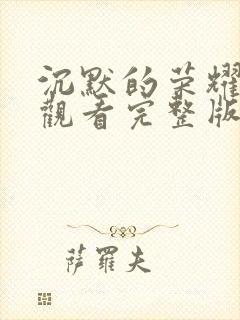 沉默的荣耀
觀看完整版
萨羅夫